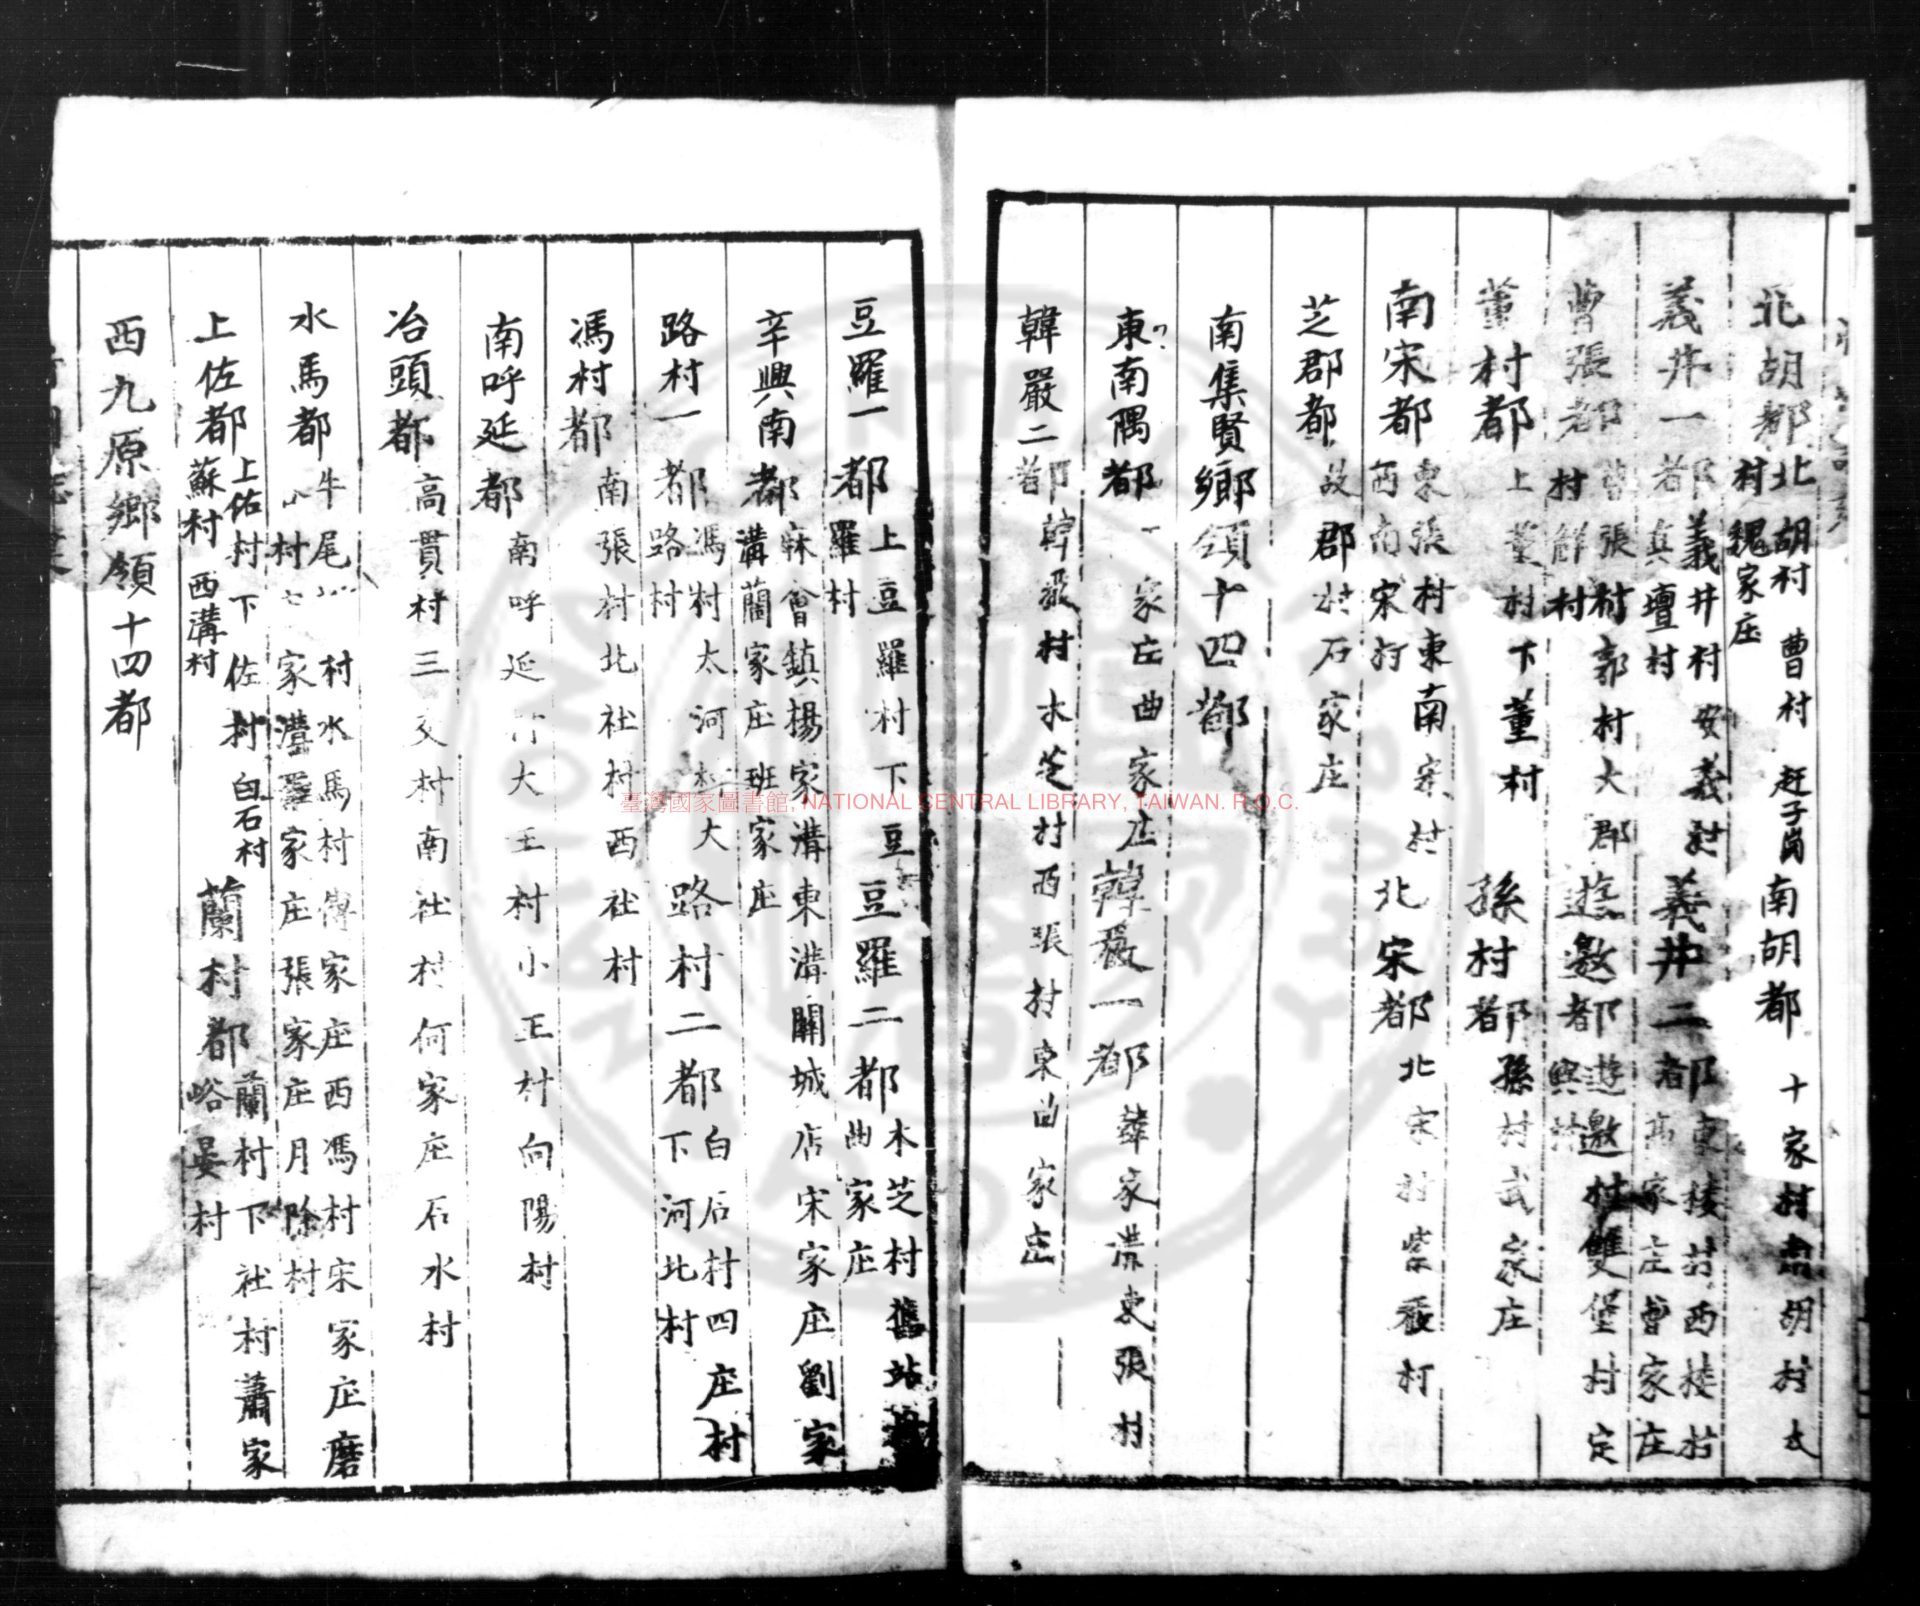 北胡都 北胡村 曹村 赶子崗 村 魏家庄 南胡都 十家村 南胡村 大
義井一都 義井村 安義村 真壇村 義井二都 東棲村 西棲村 高家庄 曹家庄
曹張都 曹張村 郭村 大郡 村 解村 遊邀都 遊邀村 雙堡村 定興村
董村都 上董村 下董村 孫村都 孫村 武家庄
南宋都 東張村 東南宋村 西南宋村 北宋都 北宋村 紫嚴村
芝郡都 故郡村 石家庄
南集賢鄉領十四都
東南隅都 家庄 曲家庄 韓嚴一都 韓家溝 東張村
韓嚴二都 韓嚴村 木芝村 西張村 東曲家庄
豆羅一都 上豆羅村 下豆羅村 豆羅二都 木芝村 舊站 曲家庄
辛興南都 麻會鎮 楊家溝 東溝 關城店 宋家庄 劉家溝 蘭家庄 班家庄
路村一都 馮村 太河村 大路村 路村二都 白石村 四庄村 下河北村
馮村都 南張村 北社村 西社村
南呼延都 南呼延村 大王村 小王村 向陽村
冶頭都 高貫村 三交村 南社村 何家庄 石水村
水馬都 牛尾 村 水馬村 傅家庄 西馮村 宋家庄 磨 村 家灃 羅家庄 張家庄 月除村
上佐都 上佐村 下佐村 白石村 蘇村 西溝村 蘭村都 蘭村 下社村 蕭家峪 晏村
西九原鄉領十四都
臺灣國家圖書館, NATIONAL CENTRAL LIBRARY, TAIWAN. R.O.C.